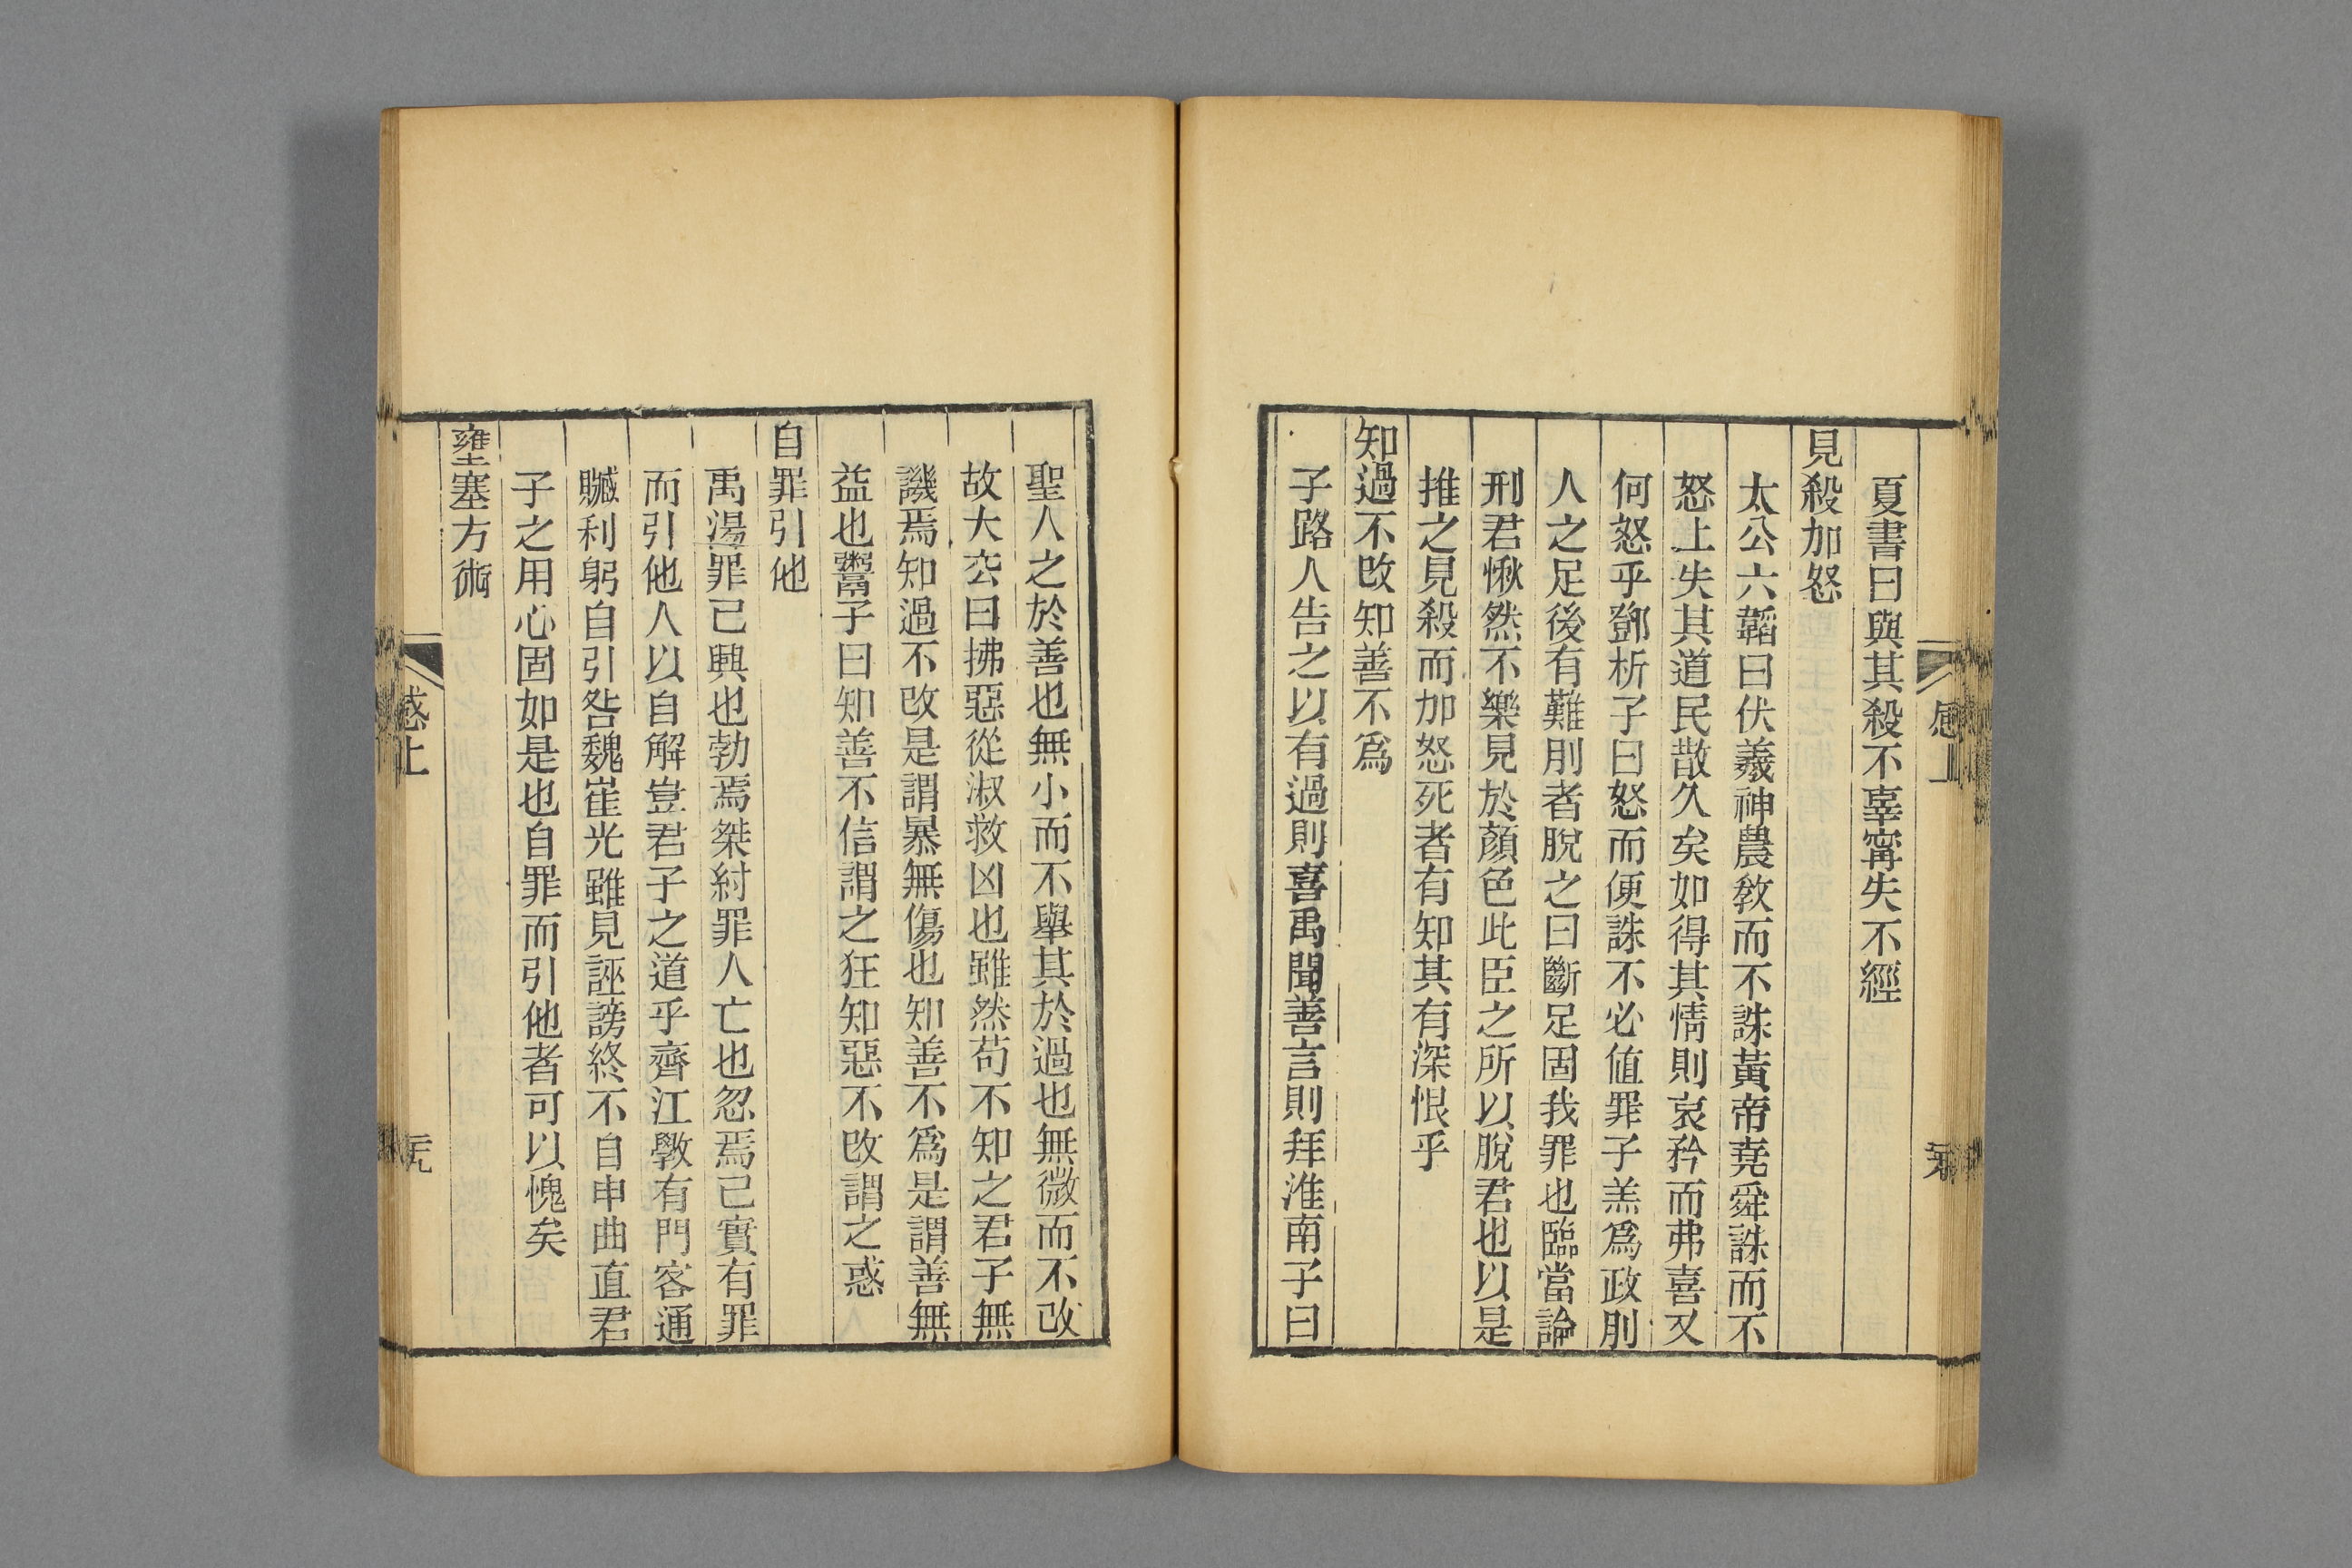 夏書曰與其殺不辜寗失不經
見殺加怒
太公六韜曰伏羲神農敎而不誅黃帝堯舜誅而不
怒上失其道民散久矣如得其情則哀矜而弗喜又
何怒乎鄧析子曰怒而便誅不必值罪子羔爲政刖
人之足後有難刖者脫之曰斷足固我罪也臨當論
刑君愀然不樂見於顏色此臣之所以脫君也以是
推之見殺而加怒死者有知其有深恨乎
知過不改知善不爲
子路人告之以有過則喜禹聞善言則拜淮南子曰
聖人之於善也無小而不舉其於過也無微而不改
故大公曰拂惡從淑救凶也雖然苟不知之君子無
譏焉知過不改是謂暴無傷也知善不爲是謂善無
益也鬻子曰知善不信謂之狂知惡不改謂之惑
自罪引他
禹湯罪己興也勃焉桀紂罪人亡也忽焉己實有罪
而引他人以自解豈君子之道乎齊江斆有門客通
贓利躬自引咎魏崔光雖見誣謗終不自申曲直君
子之用心固如是也自罪而引他者可以愧矣
壅塞方術
感上